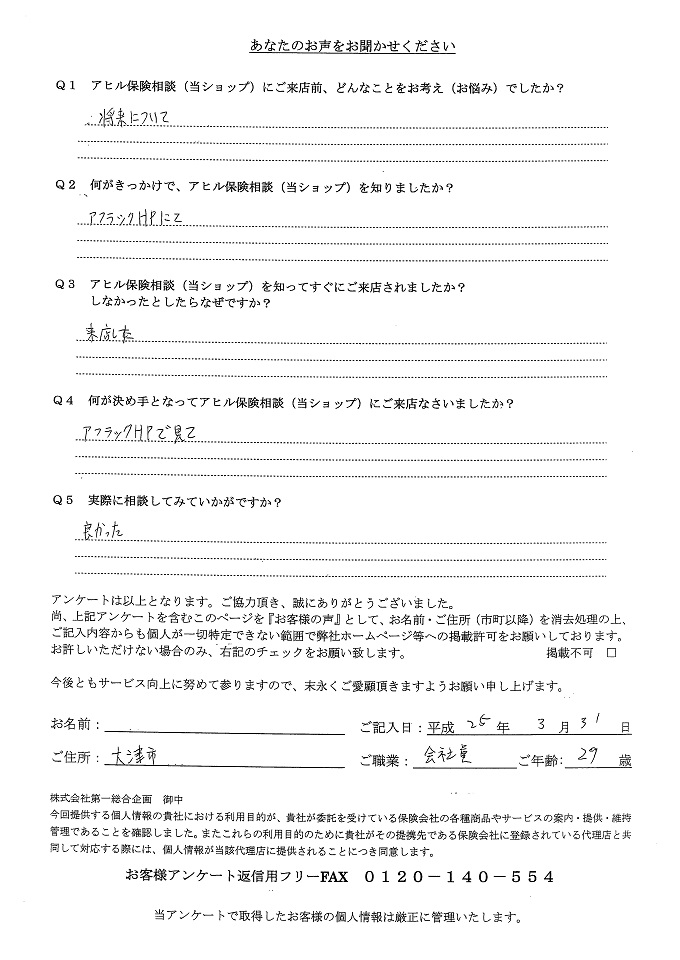 あなたのお声をお聞かせください
Q1 アヒル保険相談（当ショップ）にご来店前、どんなことをお考え（お悩み）でしたか？
将来について
Q2 何がきっかけで、アヒル保険相談（当ショップ）を知りましたか？
アフラックHPにて
Q3 アヒル保険相談（当ショップ）を知ってすぐにご来店されましたか？
しなかったとしたらなぜですか？
来店した
Q4 何が決め手となってアヒル保険相談（当ショップ）にご来店なさいましたか？
アフラックHPで見て
Q5 実際に相談してみていかがですか？
良かった
アンケートは以上となります。ご協力頂き、誠にありがとうございました。
尚、上記アンケートを含むこのページを『お客様の声』として、お名前・ご住所（市町以降）を消去処理の上、
ご記入内容からも個人が一切特定できない範囲で弊社ホームページ等への掲載許可をお願いしております。
お許しいただけない場合のみ、右記のチェックをお願い致します。 掲載不可 □
今後ともサービス向上に努めて参りますので、末永くご愛顧頂きますようお願い申し上げます。
お名前： ご記入日：平成 25 年 3 月 31 日
ご住所： 大津市 ご職業： 会社員 ご年齢： 29 歳
株式会社第一総合企画 御中
今回提供する個人情報の貴社における利用目的が、貴社が委託を受けている保険会社の各種商品やサービスの案内・提供・維持
管理であることを確認しました。またこれらの利用目的のために貴社がその提携先である保険会社に登録されている代理店と共
同して対応する際には、個人情報が当該代理店に提供されることにつき同意します。
お客様アンケート返信用フリーFAX 0120－140－554
当アンケートで取得したお客様の個人情報は厳正に管理いたします。